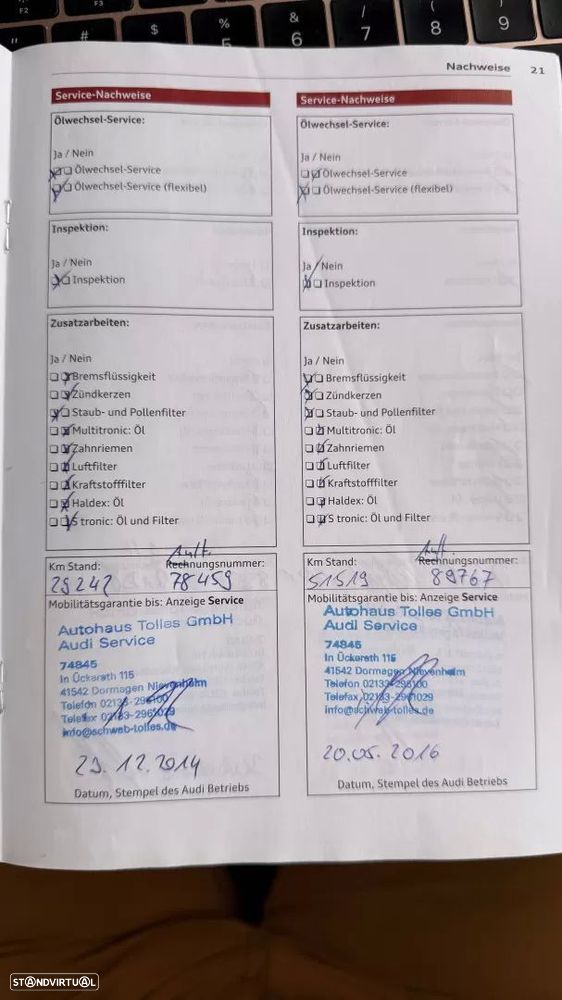 F2
F3
#
$
%
5
&
6
/
7
(
8
)
9
Nachweise 21
Service-Nachweise
Ölwechsel-Service:
Ja / Nein
Ölwechsel-Service
Ölwechsel-Service (flexibel)
Inspektion:
Ja / Nein
Inspektion
Zusatzarbeiten:
Ja / Nein
Bremsflüssigkeit
Zündkerzen
Staub- und Pollenfilter
Multitronic: Öl
Zahnriemen
Luftfilter
Kraftstofffilter
Haldex: Öl
S tronic: Öl und Filter
Auft.
Km Stand: Rechnungsnummer:
29242 78459
Mobilitätsgarantie bis: Anzeige Service
Autohaus Tolles GmbH
Audi Service
74845
In Ückerath 115
41542 Dormagen Nievenheim
Telefon 02133-296100
Telefax 02133-2961029
info@schwab-tolles.de
23.12.2014
Datum, Stempel des Audi Betriebs
Service-Nachweise
Ölwechsel-Service:
Ja / Nein
Ölwechsel-Service
Ölwechsel-Service (flexibel)
Inspektion:
Ja / Nein
Inspektion
Zusatzarbeiten:
Ja / Nein
Bremsflüssigkeit
Zündkerzen
Staub- und Pollenfilter
Multitronic: Öl
Zahnriemen
Luftfilter
Kraftstofffilter
Haldex: Öl
S tronic: Öl und Filter
Auft.
Km Stand: Rechnungsnummer:
51519 89767
Mobilitätsgarantie bis: Anzeige Service
Autohaus Tolles GmbH
Audi Service
74845
In Ückerath 115
41542 Dormagen Nievenheim
Telefon 02133-296100
Telefax 02133-2961029
info@schwab-tolles.de
20.05.2016
Datum, Stempel des Audi Betriebs
STANDVIRTUAL